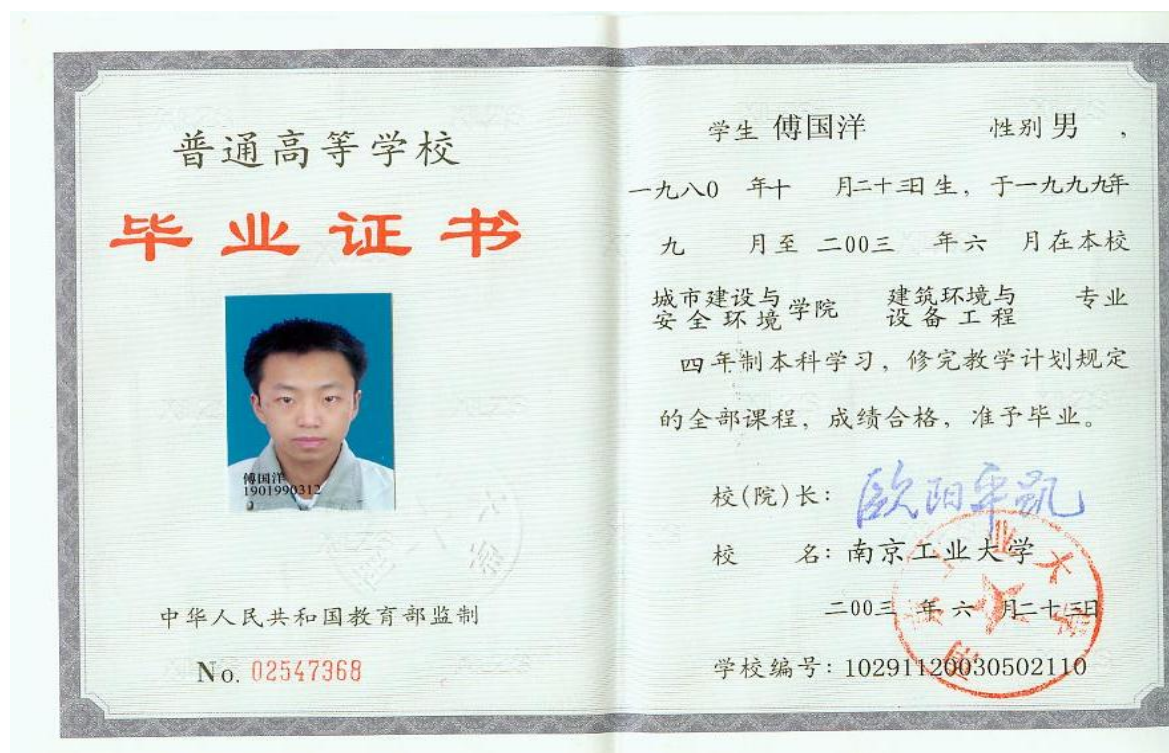 普通高等学校
毕业证书
傅国洋
1901990312
中华人民共和国教育部监制
No. 02547368
学生 傅国洋 性别 男 ，
一九八0 年十 月二十三日生，于一九九九年
九 月至 二00三 年六 月在本校
城市建设与安全环境学院 建筑环境与设备工程 专业
四年制本科学习，修完教学计划规定
的全部课程，成绩合格，准予毕业。
校(院)长：欧阳平凯
校 名：南京工业大学
二00三 年六 月二十三日
学校编号：10291120030502110
南京工业大学